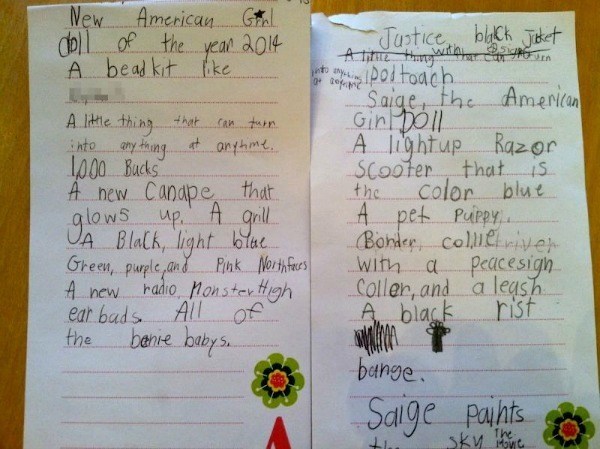 New American Girl
doll of the year 2014
A bead kit like
A little thing that can turn
into any thing at anytime.
1,000 Bucks
A new Canape that
glows up. A grill
A Black, light blue
Green, purple, and Pink Northfaces
A new radio, Monster High
ear buds. All of
the benie babys.
Justice black Jaket
with
ipod toach
Saige, the American
Girl Doll
A lightup Razor
Scooter that is
the color blue
A pet Puippy,
(Border collie
with a peacesign
Coller, and a leash
A black rist
bange.
Saige paints
the sky The Movie